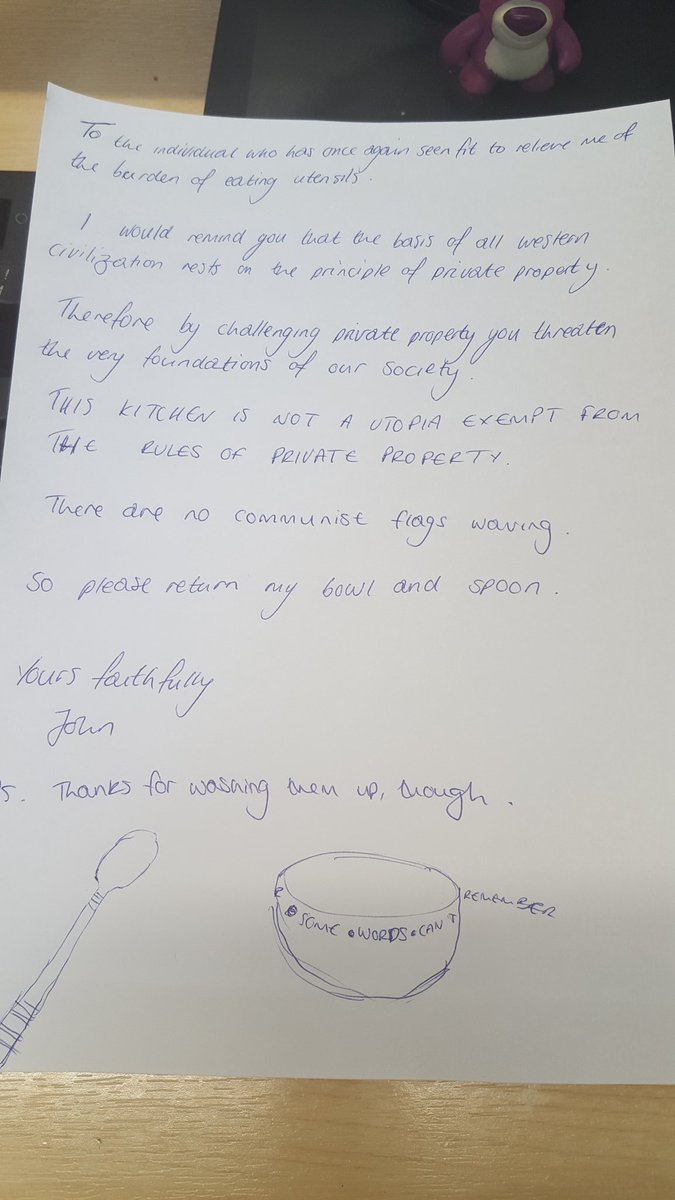 To the individual who has once again seen fit to relieve me of
the burden of eating utensils.
I would remind you that the basis of all western
civilization rests on the principle of private property.
Therefore by challenging private property you threaten
the very foundations of our society.
THIS KITCHEN IS NOT A UTOPIA EXEMPT FROM
THE RULES OF PRIVATE PROPERTY.
There are no communist flags waving.
So please return my bowl and spoon.
Yours faithfully
John
S. Thanks for washing them up, though.
SOME • WORDS • CAN'T REMEMBER